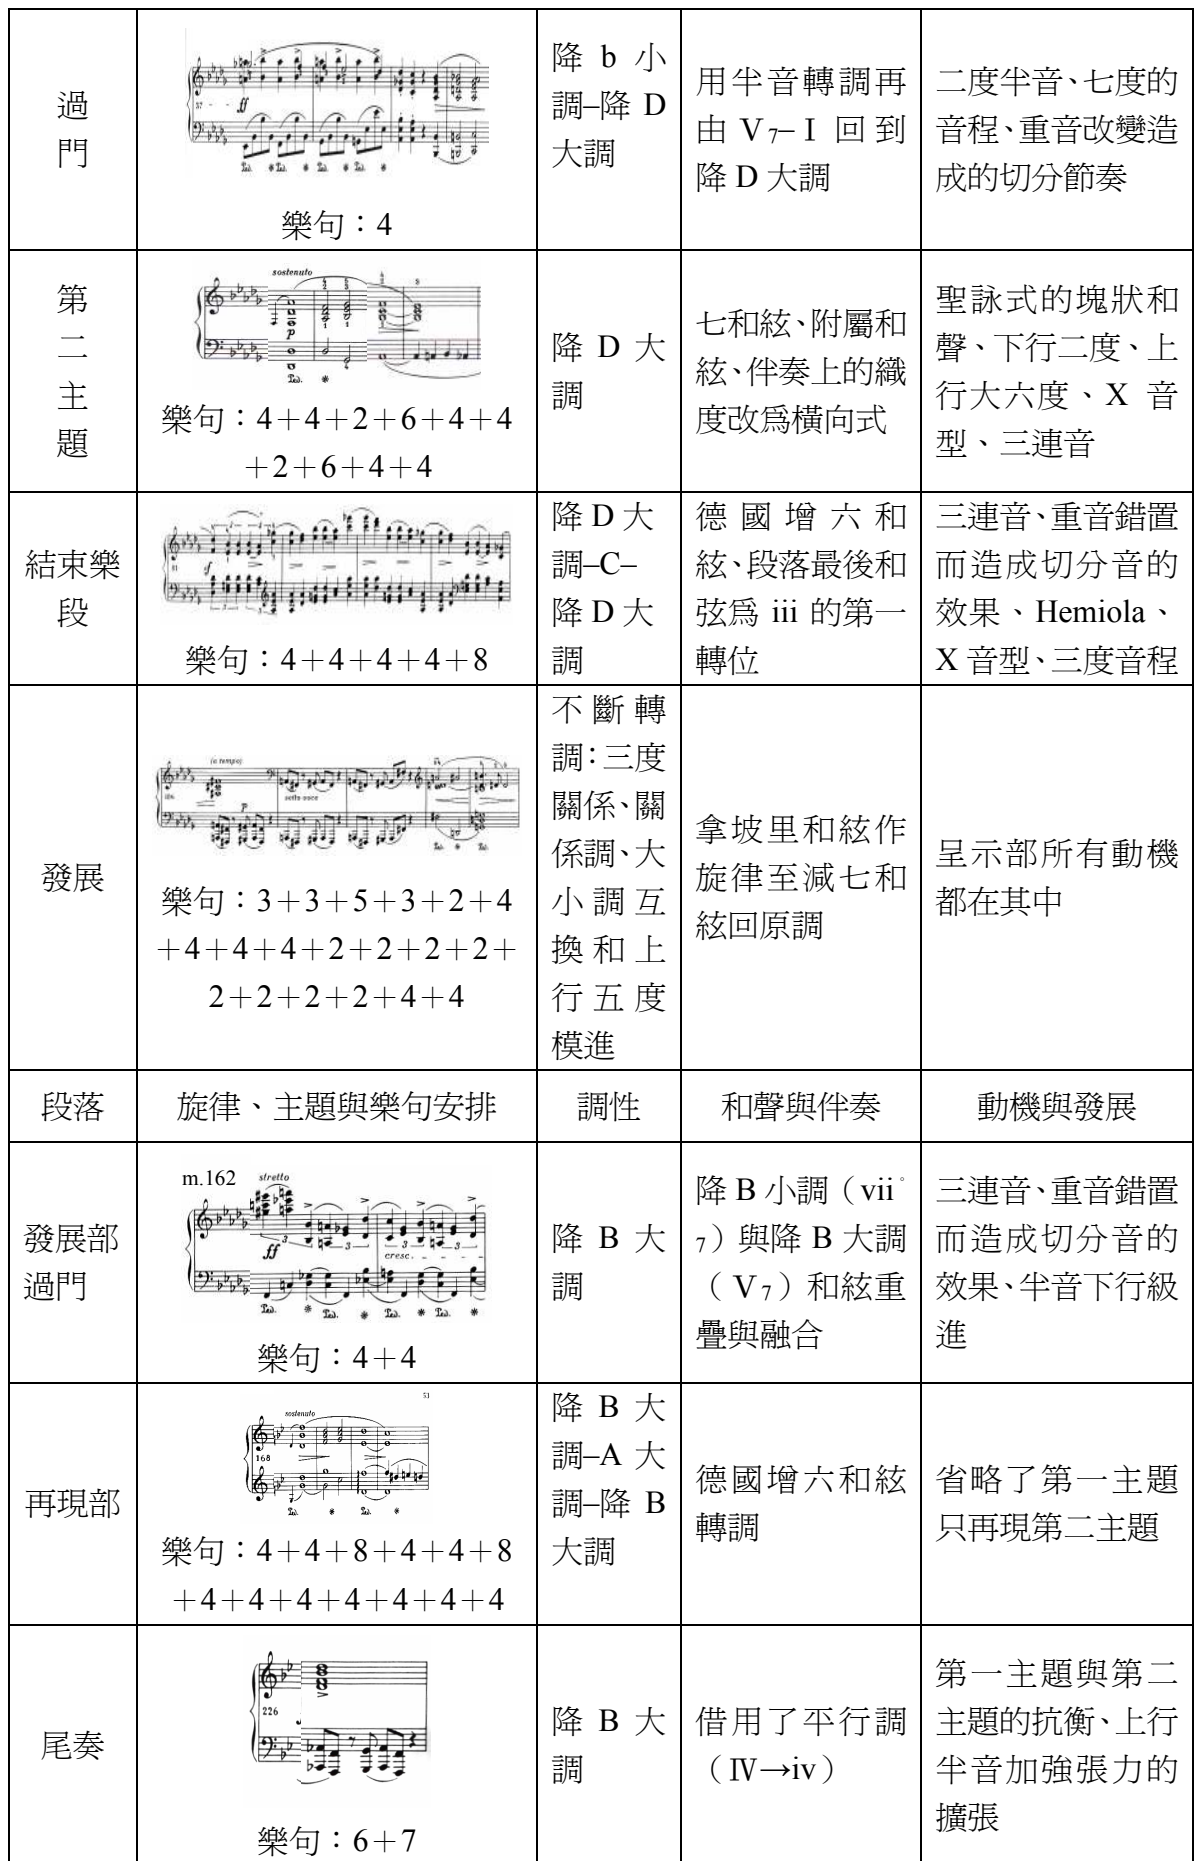 過
門
37
ff
樂句：4
降 b 小
調–降 D
大調
用半音轉調再
由 Ⅴ7–Ⅰ 回到
降 D 大調
二度半音、七度的
音程、重音改變造
成的切分節奏
第
二
主
題
sostenuto
p
樂句：4＋4＋2＋6＋4＋4
＋2＋6＋4＋4
降 D 大
調
七和絃、附屬和
絃、伴奏上的織
度改為橫向式
聖詠式的塊狀和
聲、下行二度、上
行大六度、X 音
型、三連音
結束樂
段
f
樂句：4＋4＋4＋4＋8
降 D 大
調–C–
降 D 大
調
德國增六和
絃、段落最後和
弦為 iii 的第一
轉位
三連音、重音錯置
而造成切分音的
效果、Hemiola、
X 音型、三度音程
發展
(a tempo)
p
sotto voce
樂句：3＋3＋5＋3＋2＋4
＋4＋4＋4＋2＋2＋2＋2＋
2＋2＋2＋2＋4＋4
不斷轉
調：三度
關係、關
係調、大
小調互
換和上
行五度
模進
拿坡里和絃作
旋律至減七和
絃回原調
呈示部所有動機
都在其中
段落
旋律、主題與樂句安排
調性
和聲與伴奏
動機與發展
發展部
過門
m.162
stretto
ff
cresc.
樂句：4＋4
降 B 大
調
降 B 小調（vii°
7）與降 B 大調
（Ⅴ7）和絃重
疊與融合
三連音、重音錯置
而造成切分音的
效果、半音下行級
進
再現部
53
sostenuto
168
樂句：4＋4＋8＋4＋4＋8
＋4＋4＋4＋4＋4＋4＋4
降 B 大
調–A 大
調–降 B
大調
德國增六和絃
轉調
省略了第一主題
只再現第二主題
尾奏
226
樂句：6＋7
降 B 大
調
借用了平行調
（Ⅳ→iv）
第一主題與第二
主題的抗衡、上行
半音加強張力的
擴張